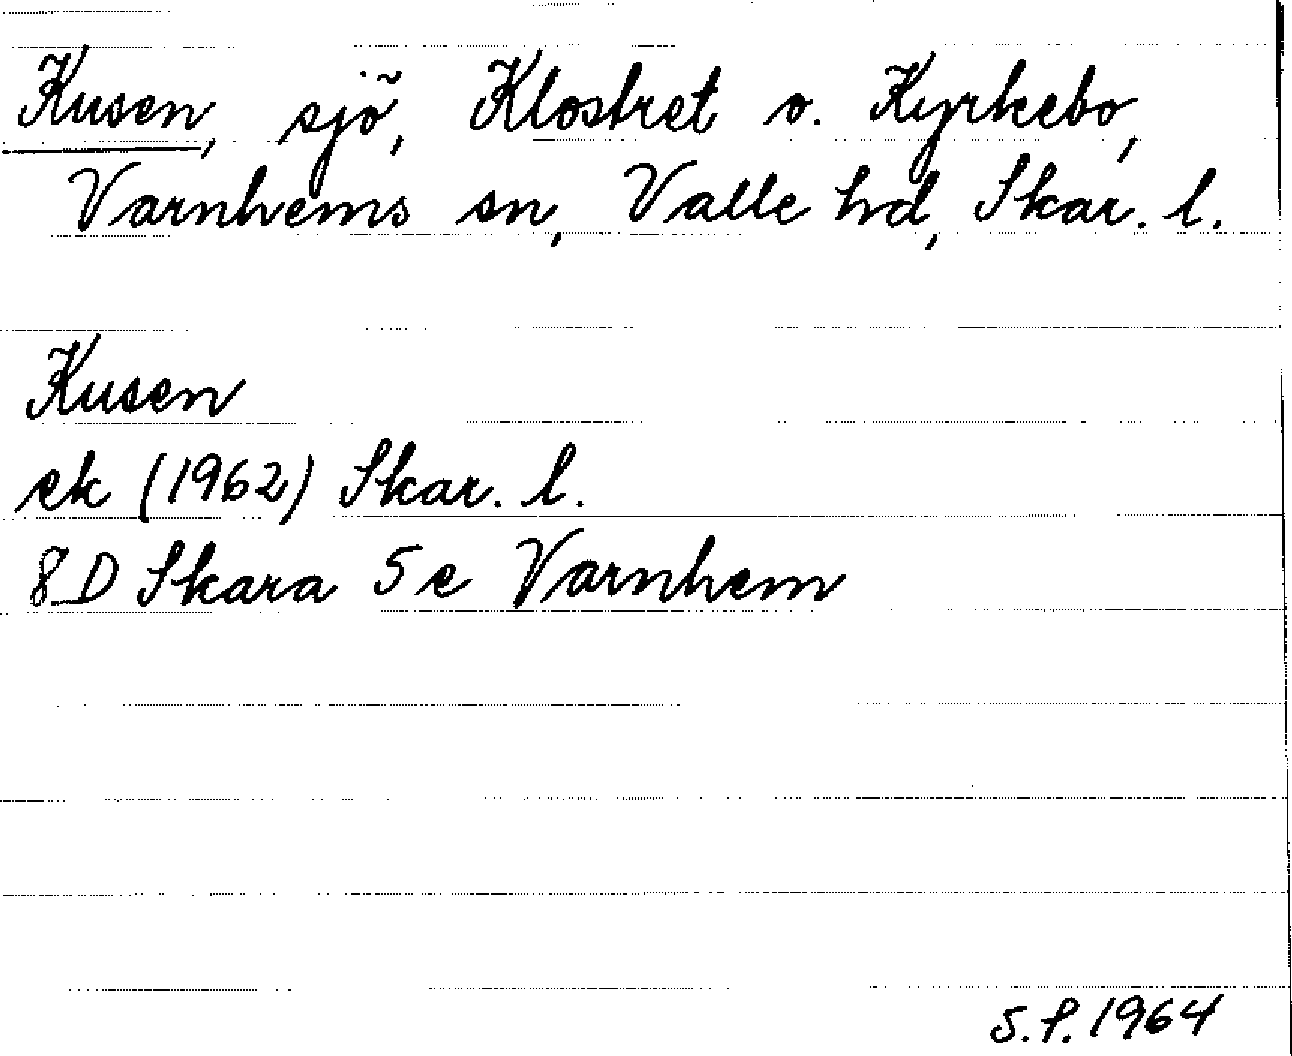 Kusen, sjö, Klostret o. Kyrkebo,
Varnhems sn, Valle hd, Skar. l.
Kusen
ek (1962) Skar. l.
8D Skara 5e Varnhem
S.P. 1964